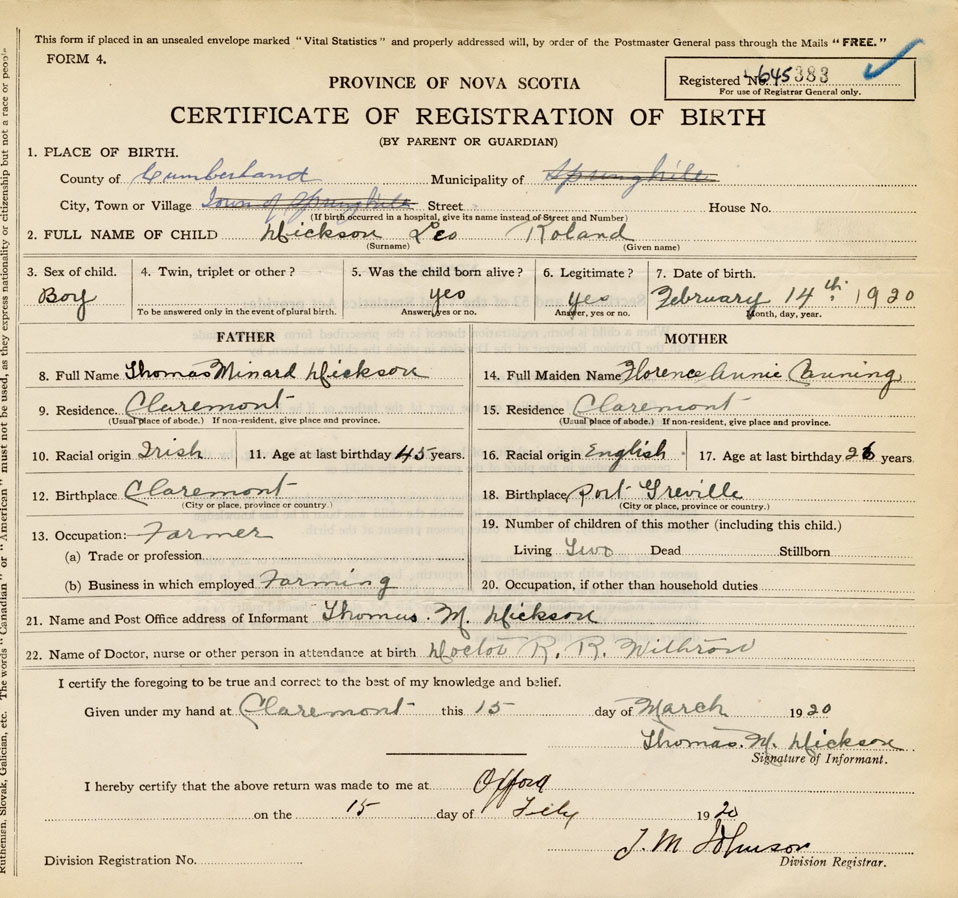 This form if placed in an unsealed envelope marked "Vital Statistics" and properly addressed will, by order of the Postmaster General pass through the Mails "FREE."
FORM 4.
Registered No. 645383
For use of Registrar General only.
PROVINCE OF NOVA SCOTIA
CERTIFICATE OF REGISTRATION OF BIRTH
(BY PARENT OR GUARDIAN)
1. PLACE OF BIRTH.
County of Cumberland Municipality of Springhill
City, Town or Village Town of Springhill Street House No.
(If birth occurred in a hospital, give its name instead of Street and Number)
2. FULL NAME OF CHILD Dickson Leo Roland
(Surname) (Given name)
3. Sex of child. 4. Twin, triplet or other? 5. Was the child born alive? 6. Legitimate? 7. Date of birth.
Boy yes yes February 14th 1920
To be answered only in the event of plural birth. Answer, yes or no. Answer, yes or no. Month, day, year.
FATHER MOTHER
8. Full Name Thomas Minard Dickson 14. Full Maiden Name Florence Annie Canning
9. Residence. Claremont 15. Residence Claremont
(Usual place of abode.) If non-resident, give place and province. (Usual place of abode.) If non-resident, give place and province.
10. Racial origin Irish 11. Age at last birthday 45 years. 16. Racial origin English 17. Age at last birthday 26 years.
12. Birthplace Claremont 18. Birthplace Port Greville
(City or place, province or country.) (City or place, province or country.)
13. Occupation: Farmer 19. Number of children of this mother (including this child.)
(a) Trade or profession Living Two Dead Stillborn
(b) Business in which employed Farming 20. Occupation, if other than household duties
21. Name and Post Office address of Informant Thomas. M. Dickson
22. Name of Doctor, nurse or other person in attendance at birth Doctor R. R. Withrow
I certify the foregoing to be true and correct to the best of my knowledge and belief.
Given under my hand at Claremont this 15 day of March 1920
Thomas. M. Dickson
Signature of Informant.
I hereby certify that the above return was made to me at
on the 15 day of 1920
J. M Johnson
Division Registration No. Division Registrar.
Ruthenian, Slovak, Galician, etc. The words "Canadian" or "American" must not be used, as they express nationality or citizenship but not a race or people